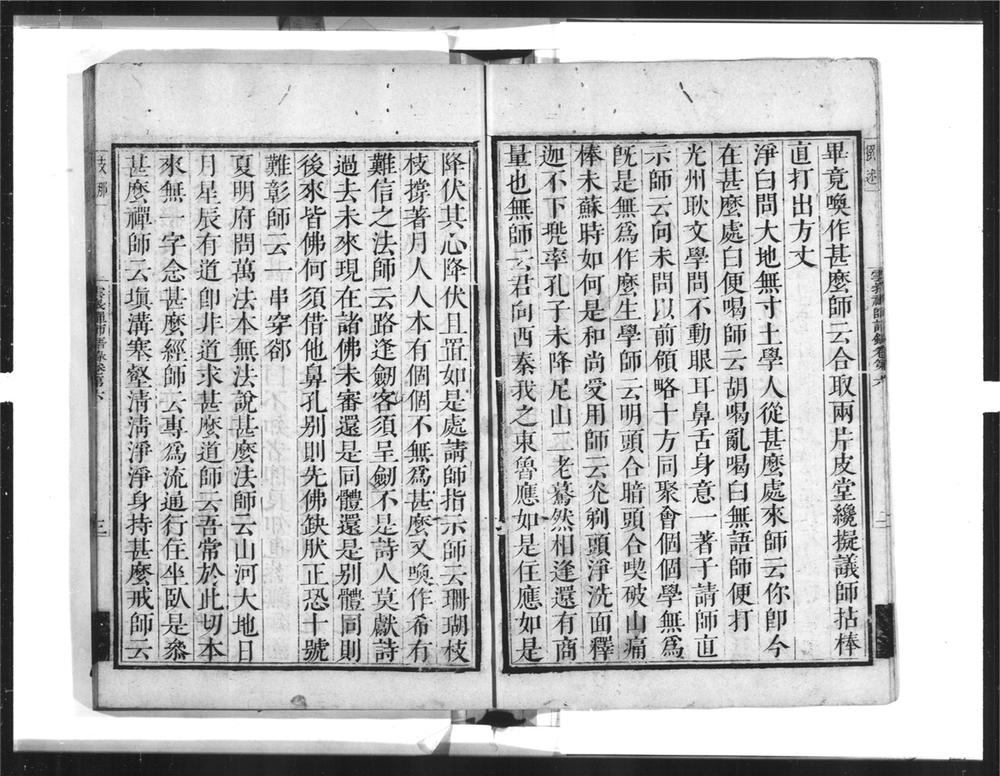 畢竟喚作甚麼師云合取兩片皮堂纔擬議師拈棒
直打出方丈
淨白問大地無寸土學人從甚麼處來師云你卽今
在甚麼處白便喝師云胡喝亂喝白無語師便打
光州耿文學問不動眼耳鼻舌身意一著子請師直
示師云向未問以前領略十方同聚會個個學無爲
旣是無爲作麼生學師云明頭合暗頭合喫破山痛
棒未蘇時如何是和尚受用師云光剃頭淨洗面釋
迦不下兜率孔子未降尼山二老驀然相逢還有商
量也無師云君向西秦我之東魯應如是住應如是
降伏其心降伏且置如是處請師指示師云珊瑚枝
枝撐著月人人本有個個不無爲甚麼又喚作希有
難信之法師云路逢劒客須呈劒不是詩人莫獻詩
過去未來現在諸佛未審還是同體還是別體同則
後來皆佛何須借他鼻孔別則先佛缺肰正恐十號
難彰師云一串穿郤
夏明府問萬法本無法說甚麼法師云山河大地日
月星辰有道卽非道求甚麼道師云吾常於此切本
來無一字念甚麼經師云專爲流通行住坐臥是叅
甚麼禪師云塡溝塞壑淸淸淨淨身持甚麼戒師云